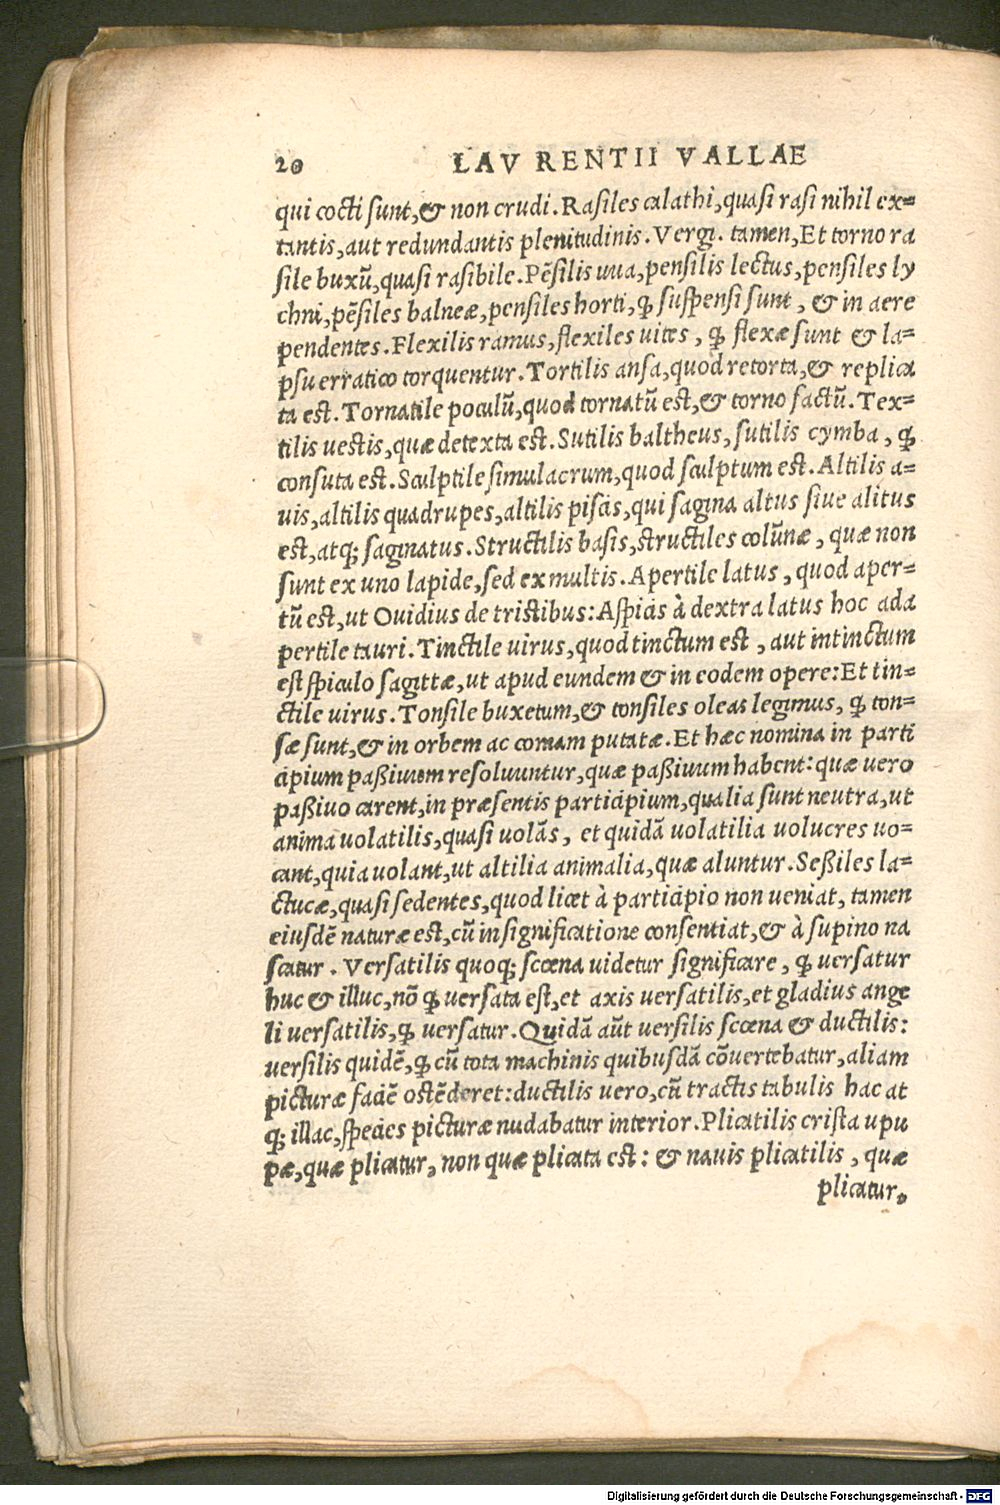 20 LAV RENTII VALLAE
qui cocti sunt,& non crudi. Rasiles calathi,quasi rasi nihil ex=
tantis,aut redundantis plenitudinis. Vergi. tamen,Et torno ra
sile buxũ,quasi rasibile. Pẽsilis uua,pensilis lectus,pensiles ly
chni,pẽsiles balneæ,pensiles horti, ꝙ suspensi sunt, & in aere
pendentes. Flexilis ramus,flexiles uites, ꝙ flexæ sunt & la=
psu erratico torquentur. Tortilis ansa,quod retorta,& replica
ta est. Tornatile poculũ,quod tornatũ est,& torno factũ. Tex=
tilis uestis,quæ detexta est. Sutilis baltheus, sutilis cymba, ꝙ
consuta est. Sculptile simulacrum,quod sculptum est. Altilis a=
uis,altilis quadrupes,altilis piscis,qui sagina altus siue alitus
est,atq; saginatus. Structilis basis,structiles colũnæ, quæ non
sunt ex uno lapide,sed ex multis. Apertile latus, quod aper=
tũ est,ut Ouidius de tristibus: Aspicis à dextra latus hoc ada
pertile tauri. Tinctile uirus,quod tinctum est, aut intinctum
est spiculo sagittæ,ut apud eundem & in eodem opere: Et tin=
ctile uirus. Tonsile buxetum,& tonsiles oleas legimus, ꝙ ton=
sæ sunt,& in orbem ac comam putatæ. Et hæc nomina in parti
cipium paßiuum resoluuntur,quæ paßiuum habent: quæ uero
paßiuo carent,in præsentis participium,qualia sunt neutra,ut
anima uolatilis,quasi uolãs, et quidã uolatilia uolucres uo=
cant,quia uolant,ut altilia animalia,quæ aluntur. Seßiles la=
ctucæ,quasi sedentes,quod licet à participio non ueniat, tamen
eiusdẽ naturæ est,cũ in significatione consentiat,& à supino na
scatur. Versatilis quoq; scœna uidetur significare, ꝙ uersatur
huc & illuc,nõ ꝙ uersata est,et axis uersatilis,et gladius ange
li uersatilis,ꝙ uersatur. Quidã aũt uersilis scœna & ductilis:
uersilis quidẽ,ꝙ cũ tota machinis quibusdã cõuertebatur,aliam
picturæ faciẽ ostẽderet: ductilis uero,cũ tractis tabulis hac at
q; illac,species picturæ nudabatur interior. Plicatilis crista upu
pæ,quæ plicatur, non quæ plicata est: & nauis plicatilis, quæ
plicatur.
Digitalisierung gefördert durch die Deutsche Forschungsgemeinschaft - DFG